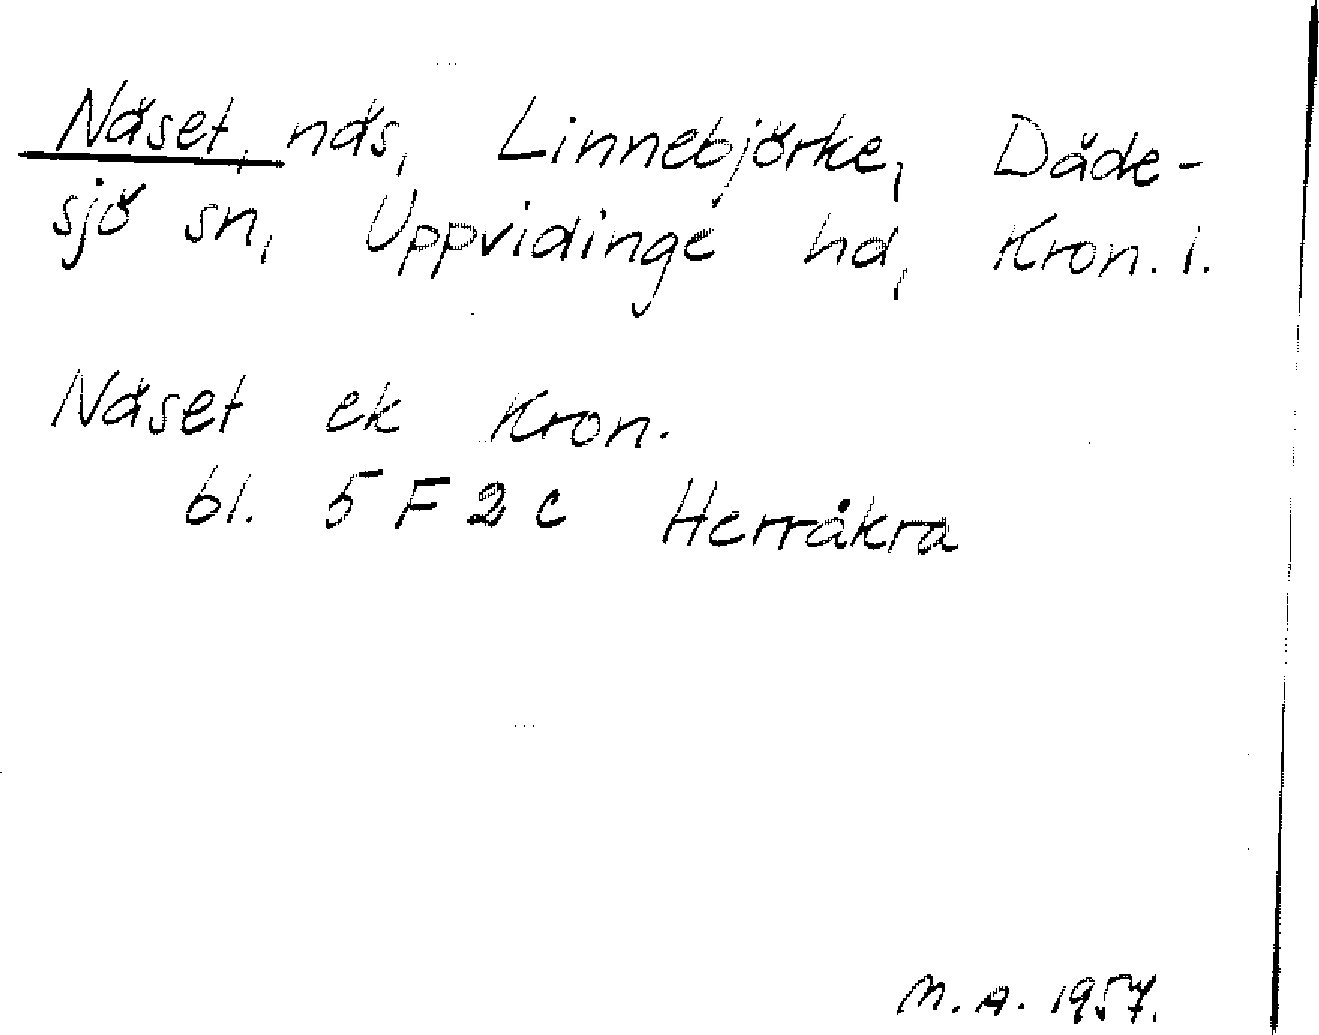 Näset, näs, Linnebjörke, Däde-
sjö sn, Uppvidinge hd, Kron. l.
Näset ek Kron.
bl. 5 F 2 c Herråkra
M. A. 1957.